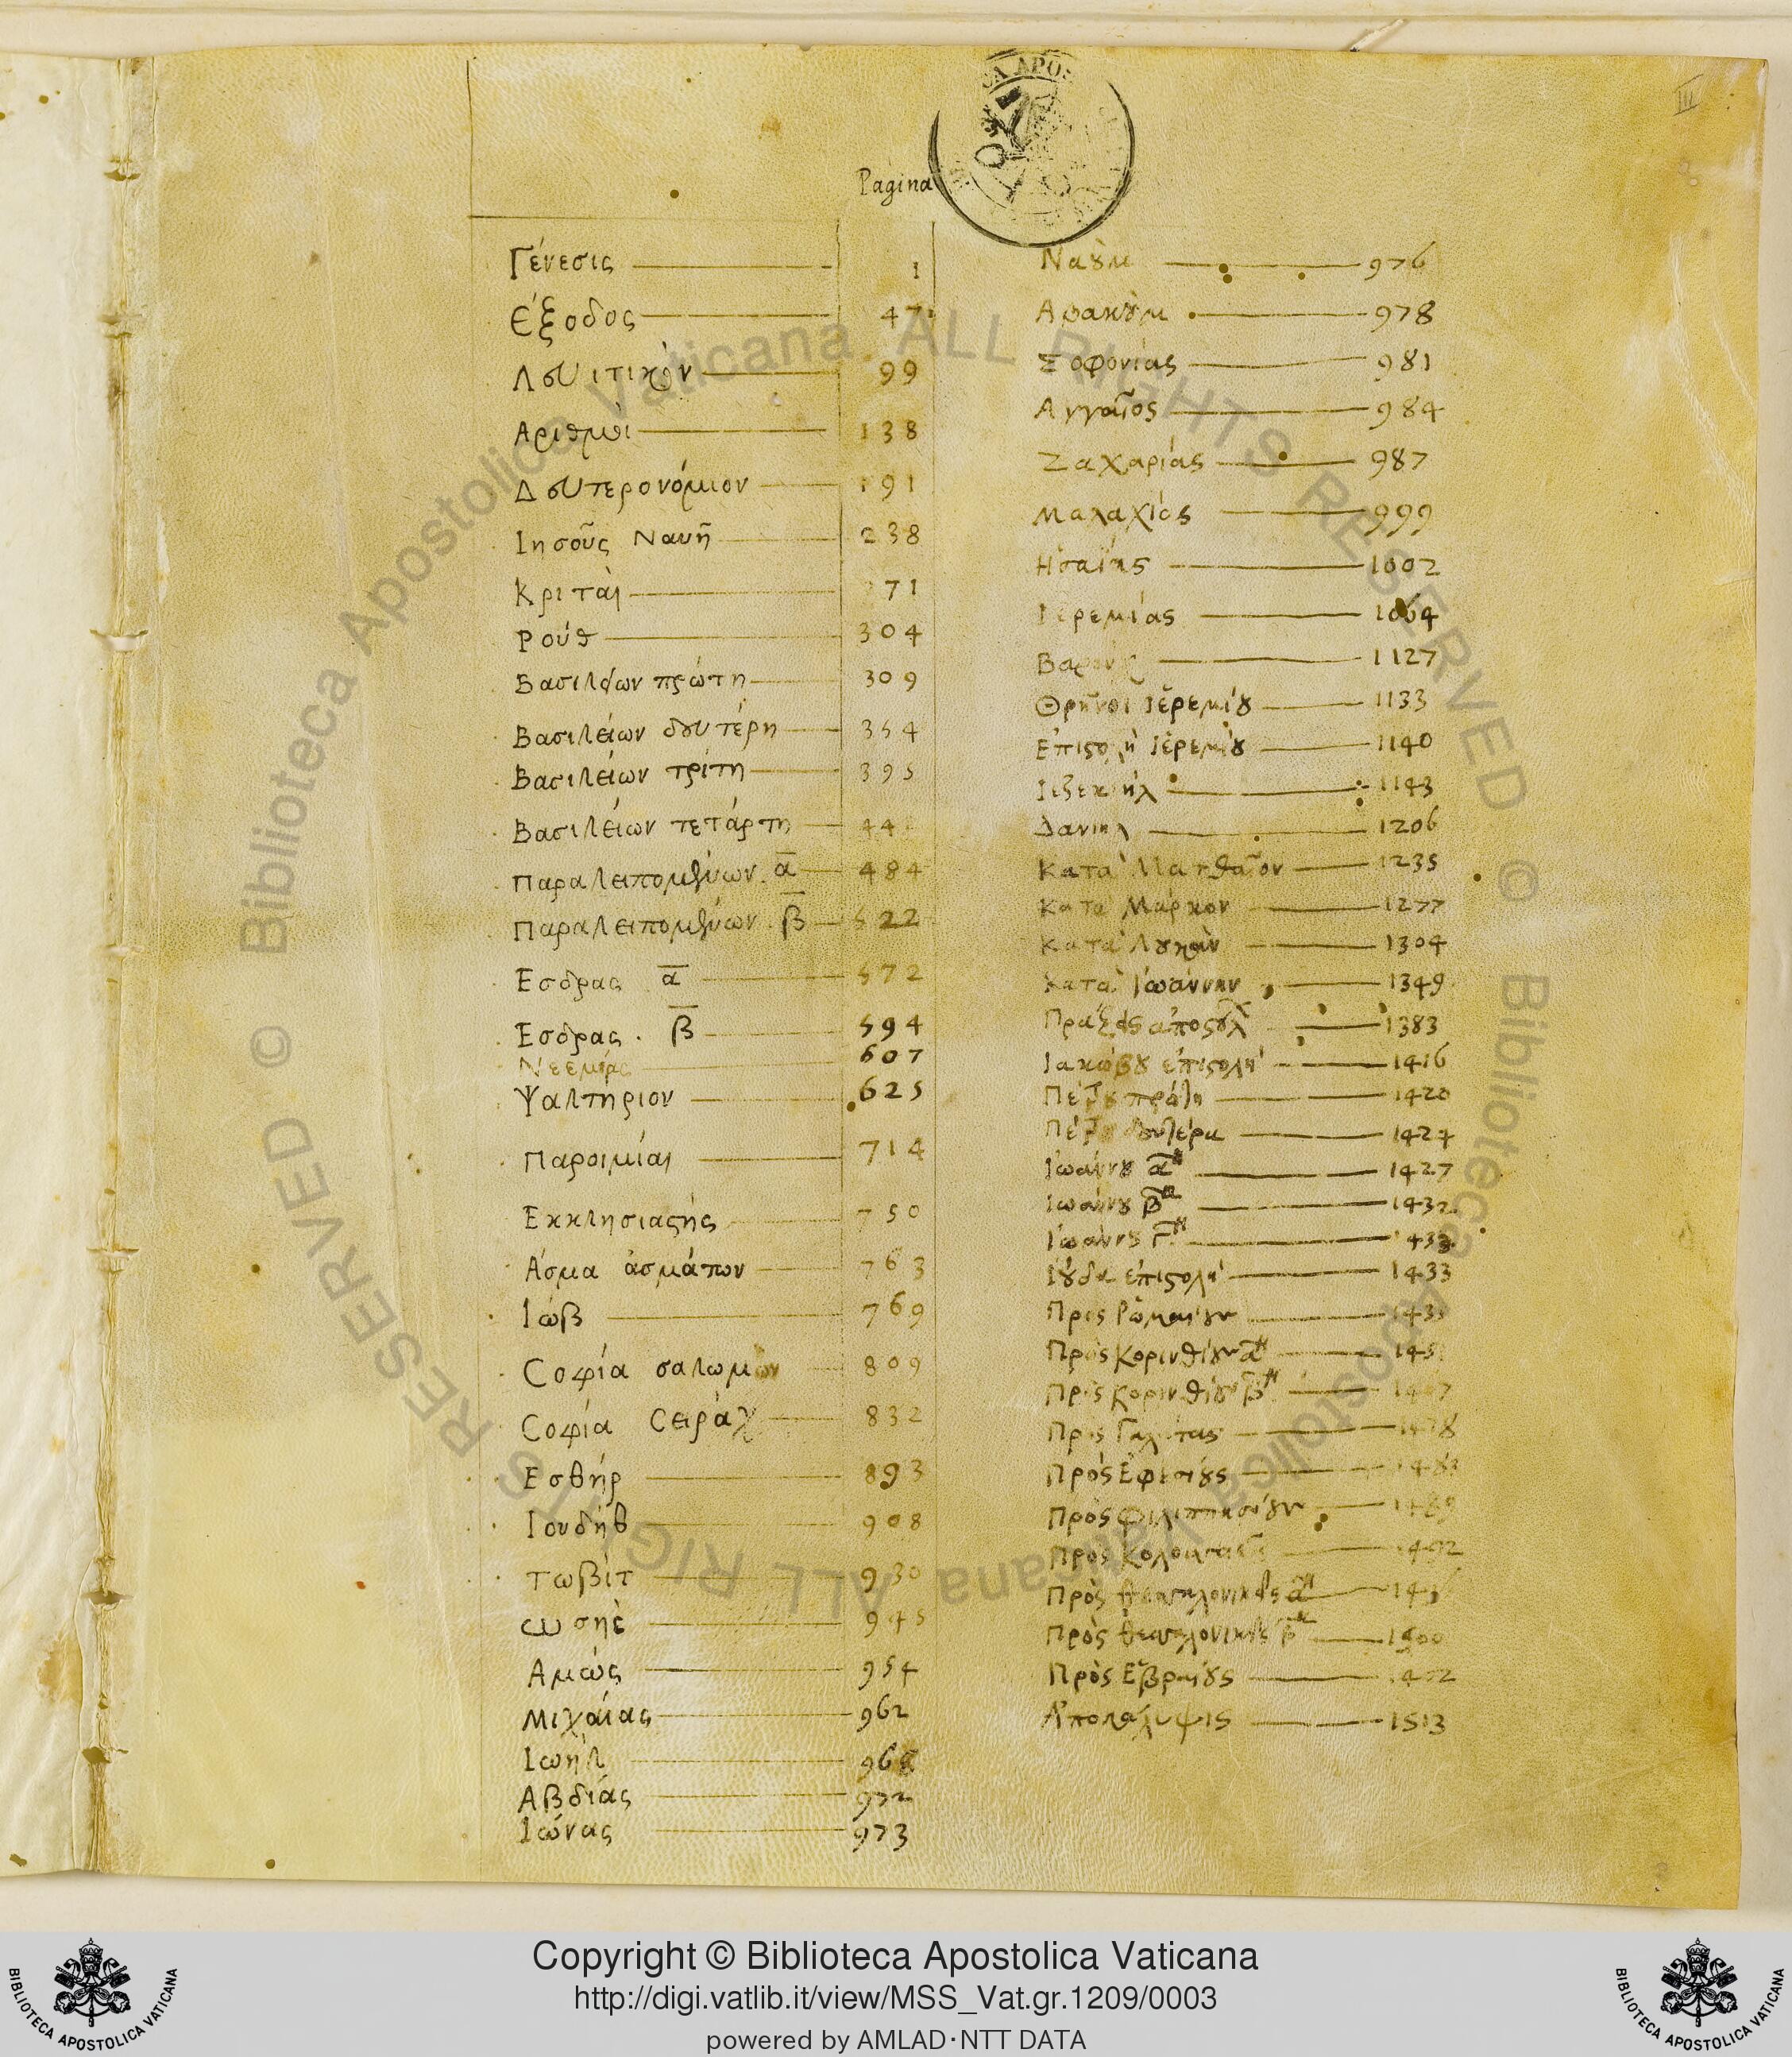 III
Pagina
Γένεσις 1
Έξοδος 47
Λευιτικὸν 99
Αριθμοὶ 138
Δευτερονόμιον 191
Ιησοῦς Ναυῆ 238
Κριταὶ 271
Ρούθ 304
Βασιλείων πρώτη 309
Βασιλείων δευτέρη 354
Βασιλείων τρίτη 395
Βασιλείων τετάρτη 44
Παραλειπομένων. α̅ 484
Παραλειπομένων. β̅ 522
Εσδρας α̅ 572
Εσδρας. β̅ 594
Νεεμίας 607
Ψαλτηριον 625
Παροιμίαι 714
Εκκλησιαςής 750
Άσμα ἀσμάτων 763
Ιώβ 769
Σοφία σαλωμὼν 809
Σοφία Σειρὰχ 832
Εσθήρ 893
Ιουδήθ 908
Τωβίτ 930
ωσηὲ 945
Αμώς 954
Μιχαίας 962
Ιωὴλ 968
Αβδιάς 972
Ιώνας 973
Ναȣ̀μ 976
Αβακȣ̀μ 978
Σοφονίας 981
Αγγαῖος 984
Ζαχαρίας 987
Μαλαχίας 999
Ησαΐης 1002
Ιερεμίας 1064
Βαροὺχ 1127
Θρῆνοι Ἰερεμίȣ 1133
Επιςολὴ Ἰερεμίȣ 1140
Ιεζεκιήλ 1143
Δανιηλ 1206
Κατὰ Ματθαῖον 1235
Κατὰ Μάρκον 1277
Κατὰ Λȣκᾶν 1304
Κατὰ Ἰωάννην 1349
Πράξεις ἀποςόλ 1383
Ιακώβȣ ἐπιςολή 1416
Πέτρȣ πρώτη 1420
Πέτρȣ δευτέρα 1424
Ἰωάννȣ α̅η 1427
Ἰωάννȣ β̅η 1432
Ἰωάννȣ Γ̅η 1433
Ἰȣ́δα ἐπιςολή 1433
Πρὸς Ρωμαίȣς 143
Πρὸς Κορινθίȣς α̅η 145
Πρὸς Κορινθίȣς β̅η
Πρὸς Γαλάτας
Πρὸς Ἐφεσίȣς 1483
Πρὸς Φιλιππησίȣς 1489
Πρὸς Κολοσσαεῖς 1492
Πρὸς Θεσσαλονικεῖς α̅η
Πρὸς Θεσσαλονικεῖς β̅η 1500
Πρὸς Ἑβραίȣς
Ἀποκάλυψις 1513
© Biblioteca Apostolica Vaticana ALL RIGHTS RESERVED © Biblioteca Apostolica Vaticana ALL RIGHTS RESERVED
Copyright © Biblioteca Apostolica Vaticana
http://digi.vatlib.it/view/MSS_Vat.gr.1209/0003
powered by AMLAD·NTT DATA
BIBLIOTECA APOSTOLICA VATICANA
BIBLIOTECA APOSTOLICA VATICANA